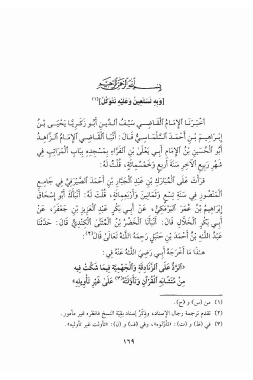 بسم الله الرحمن الرحيم
[وَبِهِ نَسْتَعِينُ وَعَلَيْهِ نَتَوَكَّلُ](١)
أَخْبَرَنَا الإِمَامُ القَاضِي سَيْفُ الدِّينِ أَبُو زَكَرِيَّا يَحْيَى بْنُ
إِبْرَاهِيمَ بْنِ أَحْمَدَ السَّلَمَاسِيُّ قَالَ: أَنَبَا القَاضِي الإِمَامُ الزَّاهِدُ
أَبُو الحُسَيْنِ بْنُ الإِمَامِ أَبِي يَعْلَى بْنِ الفَرَّاءِ بِمَسْجِدِهِ بِبَابِ المَرَاتِبِ فِي
شَهْرِ رَبِيعٍ الآخِرِ سَنَةَ أَرْبَعٍ وَخَمْسِمِائَةٍ، قُلْتُ لَهُ:
قَرَأْتَ عَلَى المُبَارَكِ بْنِ عَبْدِ الجَبَّارِ بْنِ أَحْمَدَ الصَّيْرَفِيِّ فِي جَامِعِ
المَنْصُورِ فِي سَنَةِ تِسْعٍ وَثَمَانِينَ وَأَرْبَعِمِائَةٍ، قُلْتَ لَهُ: أَنْبَأَكَ أَبُو إِسْحَاقَ
إِبْرَاهِيمُ بْنُ عُمَرَ البَرْمَكِيُّ، عَنْ أَبِي بَكْرٍ عَبْدِ العَزِيزِ بْنِ جَعْفَرٍ، عَنْ
أَبِي بَكْرٍ الخَلَّالِ قَالَ: أَنْبَأَنَا الخَضِرُ بْنُ المُثَنَّى الكِنْدِيُّ قَالَ: حَدَّثَنَا
عَبْدُ اللهِ بْنُ أَحْمَدَ بْنِ حَنْبَلٍ رَحِمَهُ اللهُ تَعَالَى قَالَ(٢):
هٰذَا مَا أَخْرَجَهُ أَبِي رَضِيَ اللهُ عَنْهُ فِي:
«الرَّدِّ عَلَى الزَّنَادِقَةِ وَالجَهْمِيَّةِ فِيمَا شَكَّتْ فِيهِ
مِنْ مُتَشَابِهِ القُرْآنِ وَتَأَوَّلَتْهُ(٣) عَلَى غَيْرِ تَأْوِيلِهِ»
(١) من (س) و(ح).
(٢) تقدم ترجمة رجال الإسناد، وذِكْرُ إسناد بقيّة النسخ فانظره غير مأمور.
(٣) في (ظ) و(ت): «تأوَّلوه»، وفي (ف) و(ن): «تأولت غير تأويله».
١٦٩